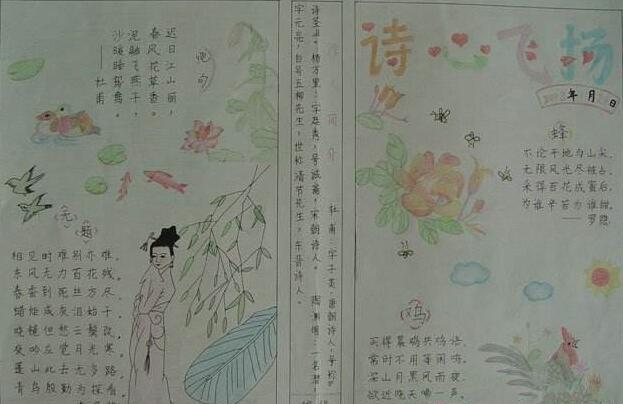 绝句
迟日江山丽，
春风花草香。
泥融飞燕子，
沙暖睡鸳鸯。
——杜甫
无题
相见时难别亦难。
东风无力百花残
春蚕到死丝方尽，
蜡炬成灰泪始干
晓镜但愁云鬓改
夜吟应觉月光寒
蓬山此去无多路
青鸟殷勤为探看
简介
杜甫：字子美，唐朝诗人，号称
诗圣。杨万里：字廷秀，号诚斋，宋朝诗人。陶渊明：一名潜，
字元亮，自号五柳先生，世称清节先生，东晋诗人。
诗心飞扬
年 月 日
蜂
不论平地为山尖，
无限风光尽被占。
采得百花成蜜后，
为谁辛苦为谁甜。
——罗隐
鸡
买得晨鸡共鸡语，
常时不用等闲鸣。
深山月黑风雨夜，
欲近晓天啼一声。